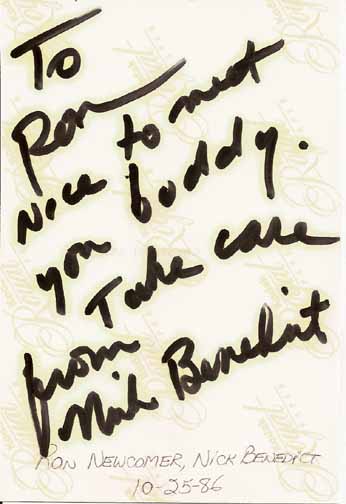 To
Ron
Nice to meet
you buddy.
Take care
from
Nick Benedict
RON NEWCOMER, NICK BENEDICT
10-25-86